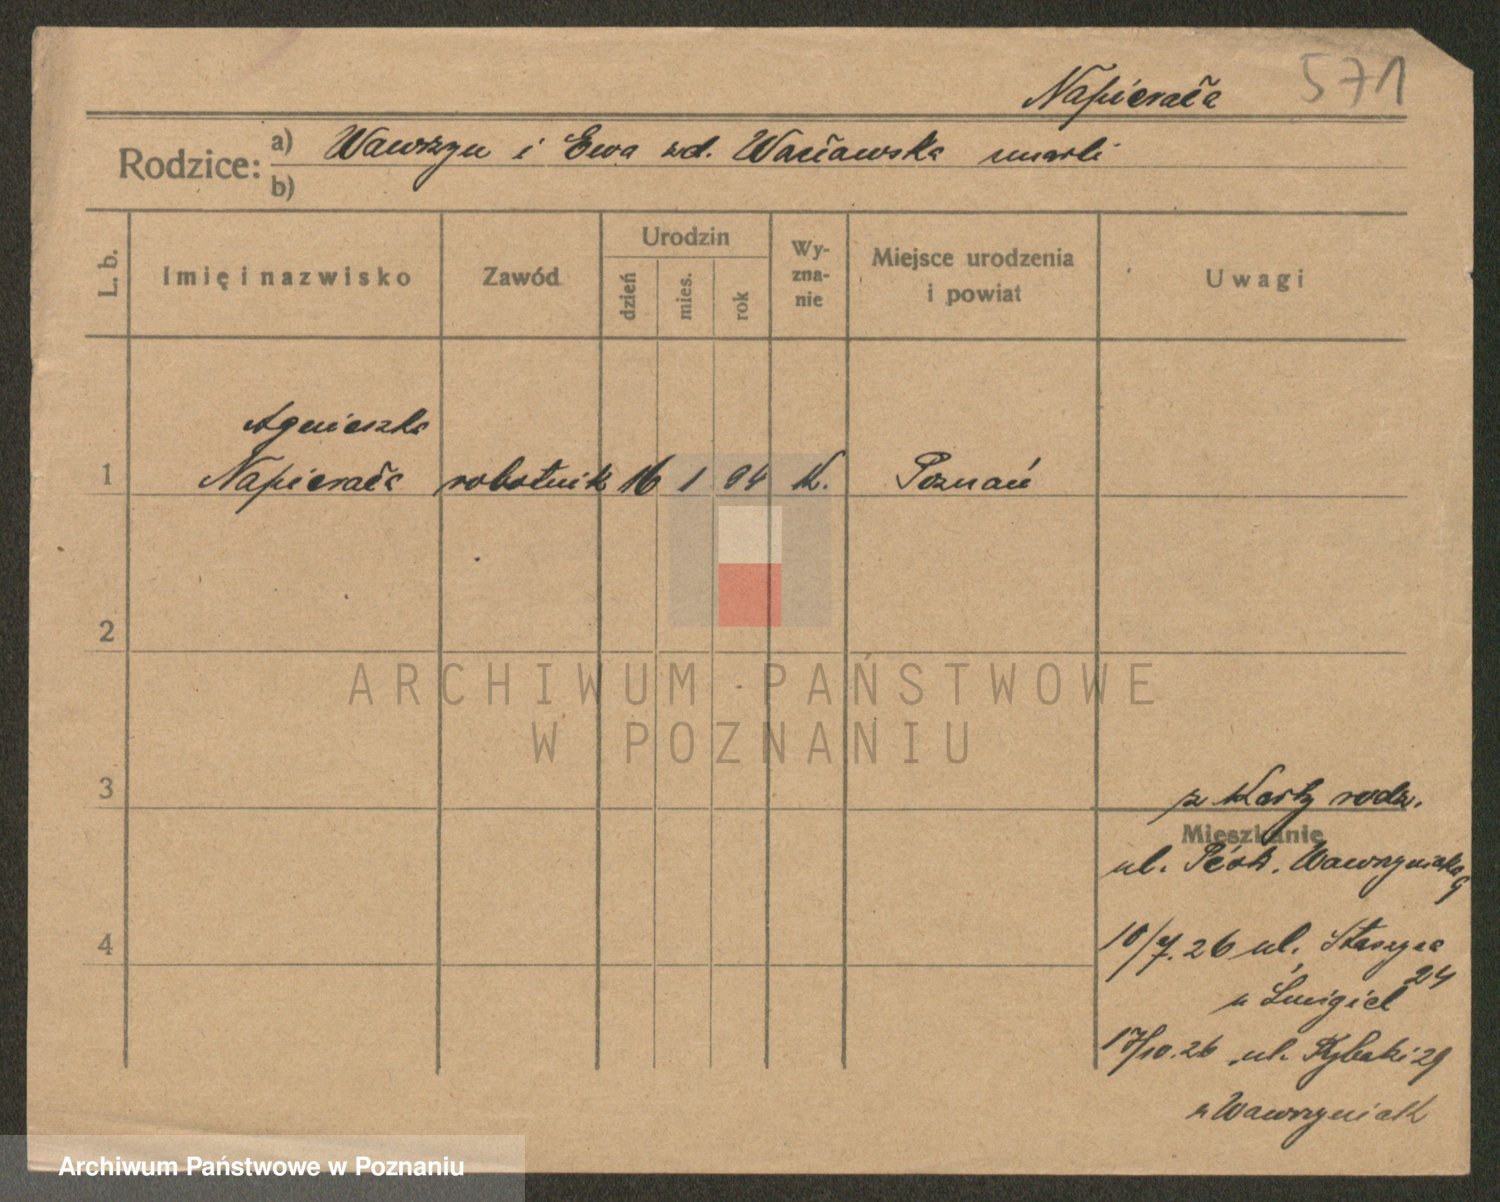 571
Napierała
Rodzice: a) Wawrzyn i Ewa zd. Wacławska umarli
b)
L. b. Imię i nazwisko Zawód Urodzin Wy-
zna-
nie Miejsce urodzenia
i powiat Uwagi
dzień mies. rok
Agnieszka
1 Napierała robotnik 16 1 94 K. Poznań
2
ARCHIWUM PAŃSTWOWE
W POZNANIU
3
z Karty rodz.
Mieszkanie
ul. Piotr. Wawrzyniaka 9
4
10/7.26 ul. Staszyca
24
u Śmigiel
17/10.26 ul. Rybaki 29
u Wawrzyniak
Archiwum Państwowe w Poznaniu